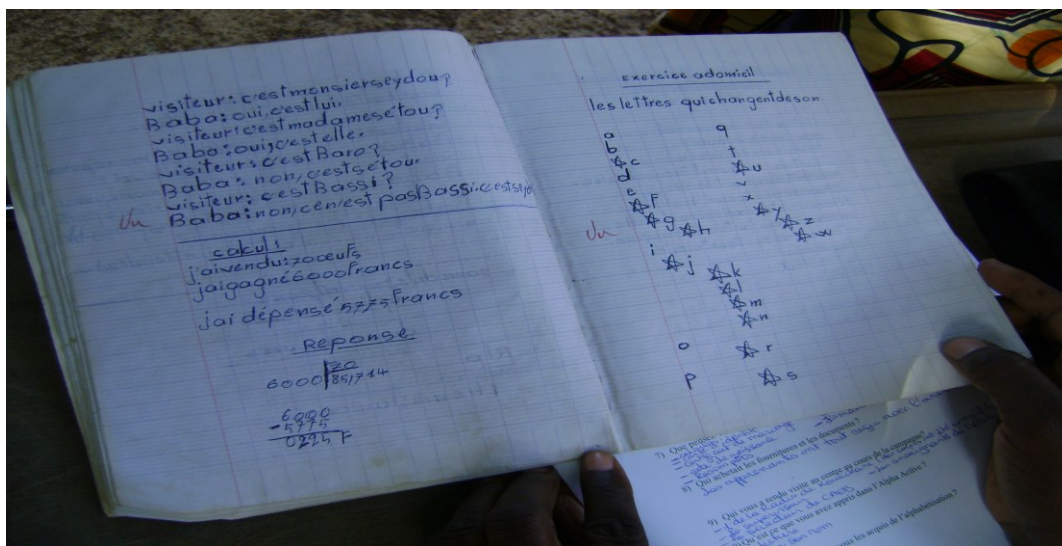 visiteur: c'est monsierseydou?
Baba: oui, c'est lui.
visiteur: c'est madamesétou?
Baba: oui, c'est elle.
visiteur: c'est Baro?
Baba: non, c'est sétou.
visiteur: c'est Bassi?
Vu Baba: non, cen'est pas Bassi. c'est
calcul:
j'ai vendu: 70 oeufs
jai gagné 6000 francs
jai dépensé 5775 francs
Reponse
6000 70
85,714
6000
- 5775
0225 F
exercice adomicil
les lettres qui changent de son
a q
b t
☆ c ☆ u
d v
e x
☆ F ☆ y ☆ z
☆ g ☆ h ☆ w
Vu
i ☆ j ☆ k
☆ l
☆ m
☆ n
o ☆ r
p ☆ s
7) Que pensez
8) Qui achetait les fournitures et les documents ?
9) Qui vous a rendu visite au centre au cours de la campagne ?
Qu est ce que vous avez appris dans l'Alpha Active ?
les acquis de l'alphabétisation ?